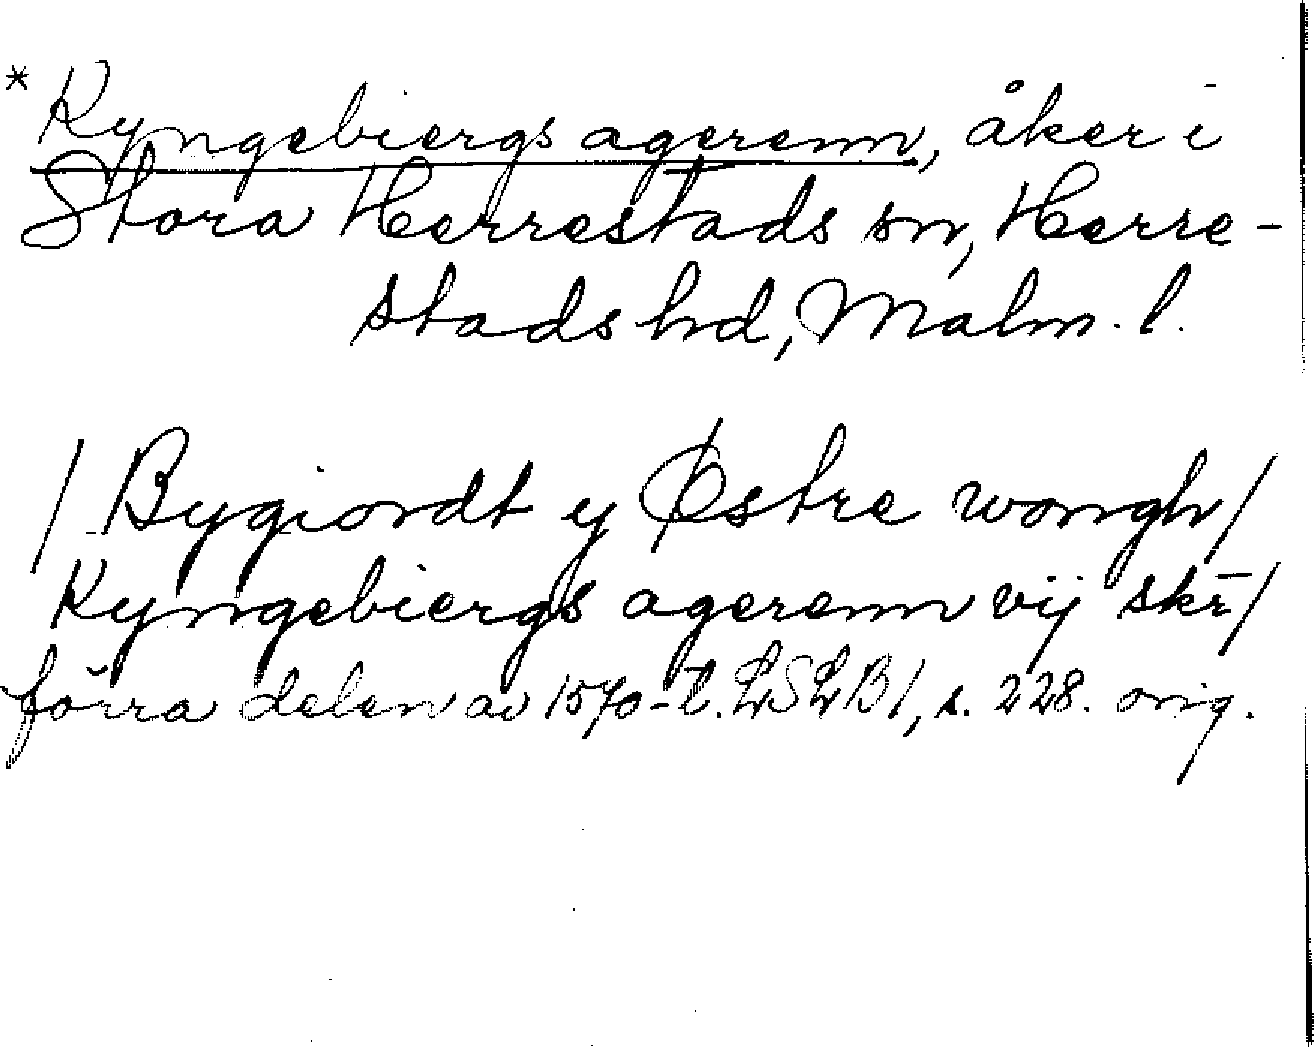 * Kyngebiergs agerenn, åker i
Stora Herrestads sn, Herre-
stads hd, Malm. l.
/ Bygiordt y Østre wongh /
Kyngebiergs agerenn vij skr̄ /
förra delen av 1570-t. LSLB 1, s. 228. orig.